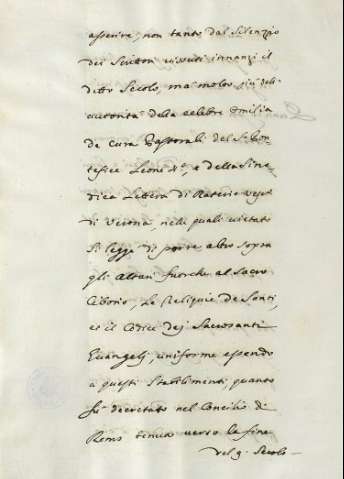 asserire, non tanto dal Silenzio
dei Scrittori vissuti innanzi il
detto Secolo, ma molto più dell'
autorità della celebre Omilia
de cura Pastorali del S. Pon-
tefice Leone 4.º, e della Sino-
dica Lettera di Raterio Vesc.º
di Verona, nelli quali vietato
si legge di porre altro sopra
gli Altari fuorchè al Sagro
Ciborio, Le Reliquie de Santi,
et il Codice dej Sacrosanti
Evangelj, uniforme essendo
a questi Stabilimenti, quanto
fù decretato nel Concilio di
Rems tenuto verso la fine
del 9. Secolo